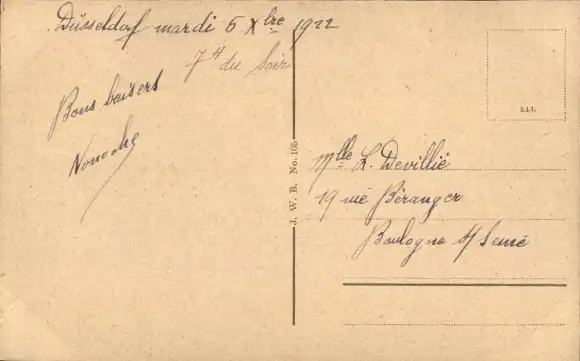 Düsseldorf mardi 5 Xbre 1922
7H du Soir
Bons baisers
Nonoche
J. W. B. No. 105
Mlle L. Devillié
19 rue Béranger
Boulogne s/ Seine